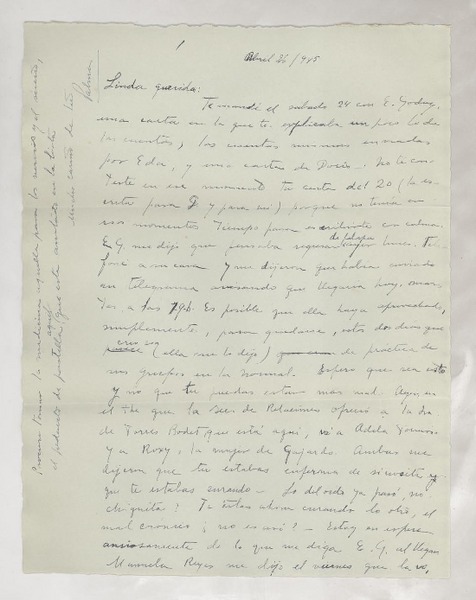 Abril 26/945
Linda querida:
Te mandé el sabado 24 con E. Godoy,
una carta en la que te explicaba un poco lo de
las cuentas, las cuentas mismas enviadas
por Eda, y una carta de Doris. No te con
testé en ese momento tu carta del 20 (la es-
crita para D y para mí) porque no tenía en
esos momentos tiempo para escribirte con calma.
E.G. me dijo que pensaba regresar de Jalapa hoy lunes. Tele
foneé a su casa y me dijeron que había enviado
un telegrama avisando que llegaría hoy, martes
a las 7 p.m. Es posible que ella haya aprovechado,
simplemente, para quedarse, estos dos días que
creo son
(ella me lo dijo) de práctica de
sus grupos en la Normal. Espero que sea esto
y no que tú puedas estar más mal. Ayer, en
el té que la Sec. de Relaciones ofreció a la Sra
de Torres Bodet, que está aquí, vi a Adela
y a Roxy, la mujer de Gajardo. Ambas me
dijeron que tú estabas enferma de sinusitis y
que te estabas curando. Lo del oído ya pasó, no
chiquita? Tú estás ahora curando lo otro, el
mal crónico, ¿no es así? - Estoy en espera
ansiosamente de lo que me diga E.G. al llegar.
Manuela Reyes me dijo el viernes que la vió,
Procura tomar la medicina aquella para los nervios y el sueño,
aquel
el producto de (que está anotado en la lista
Mucho cariño de tu
Palma